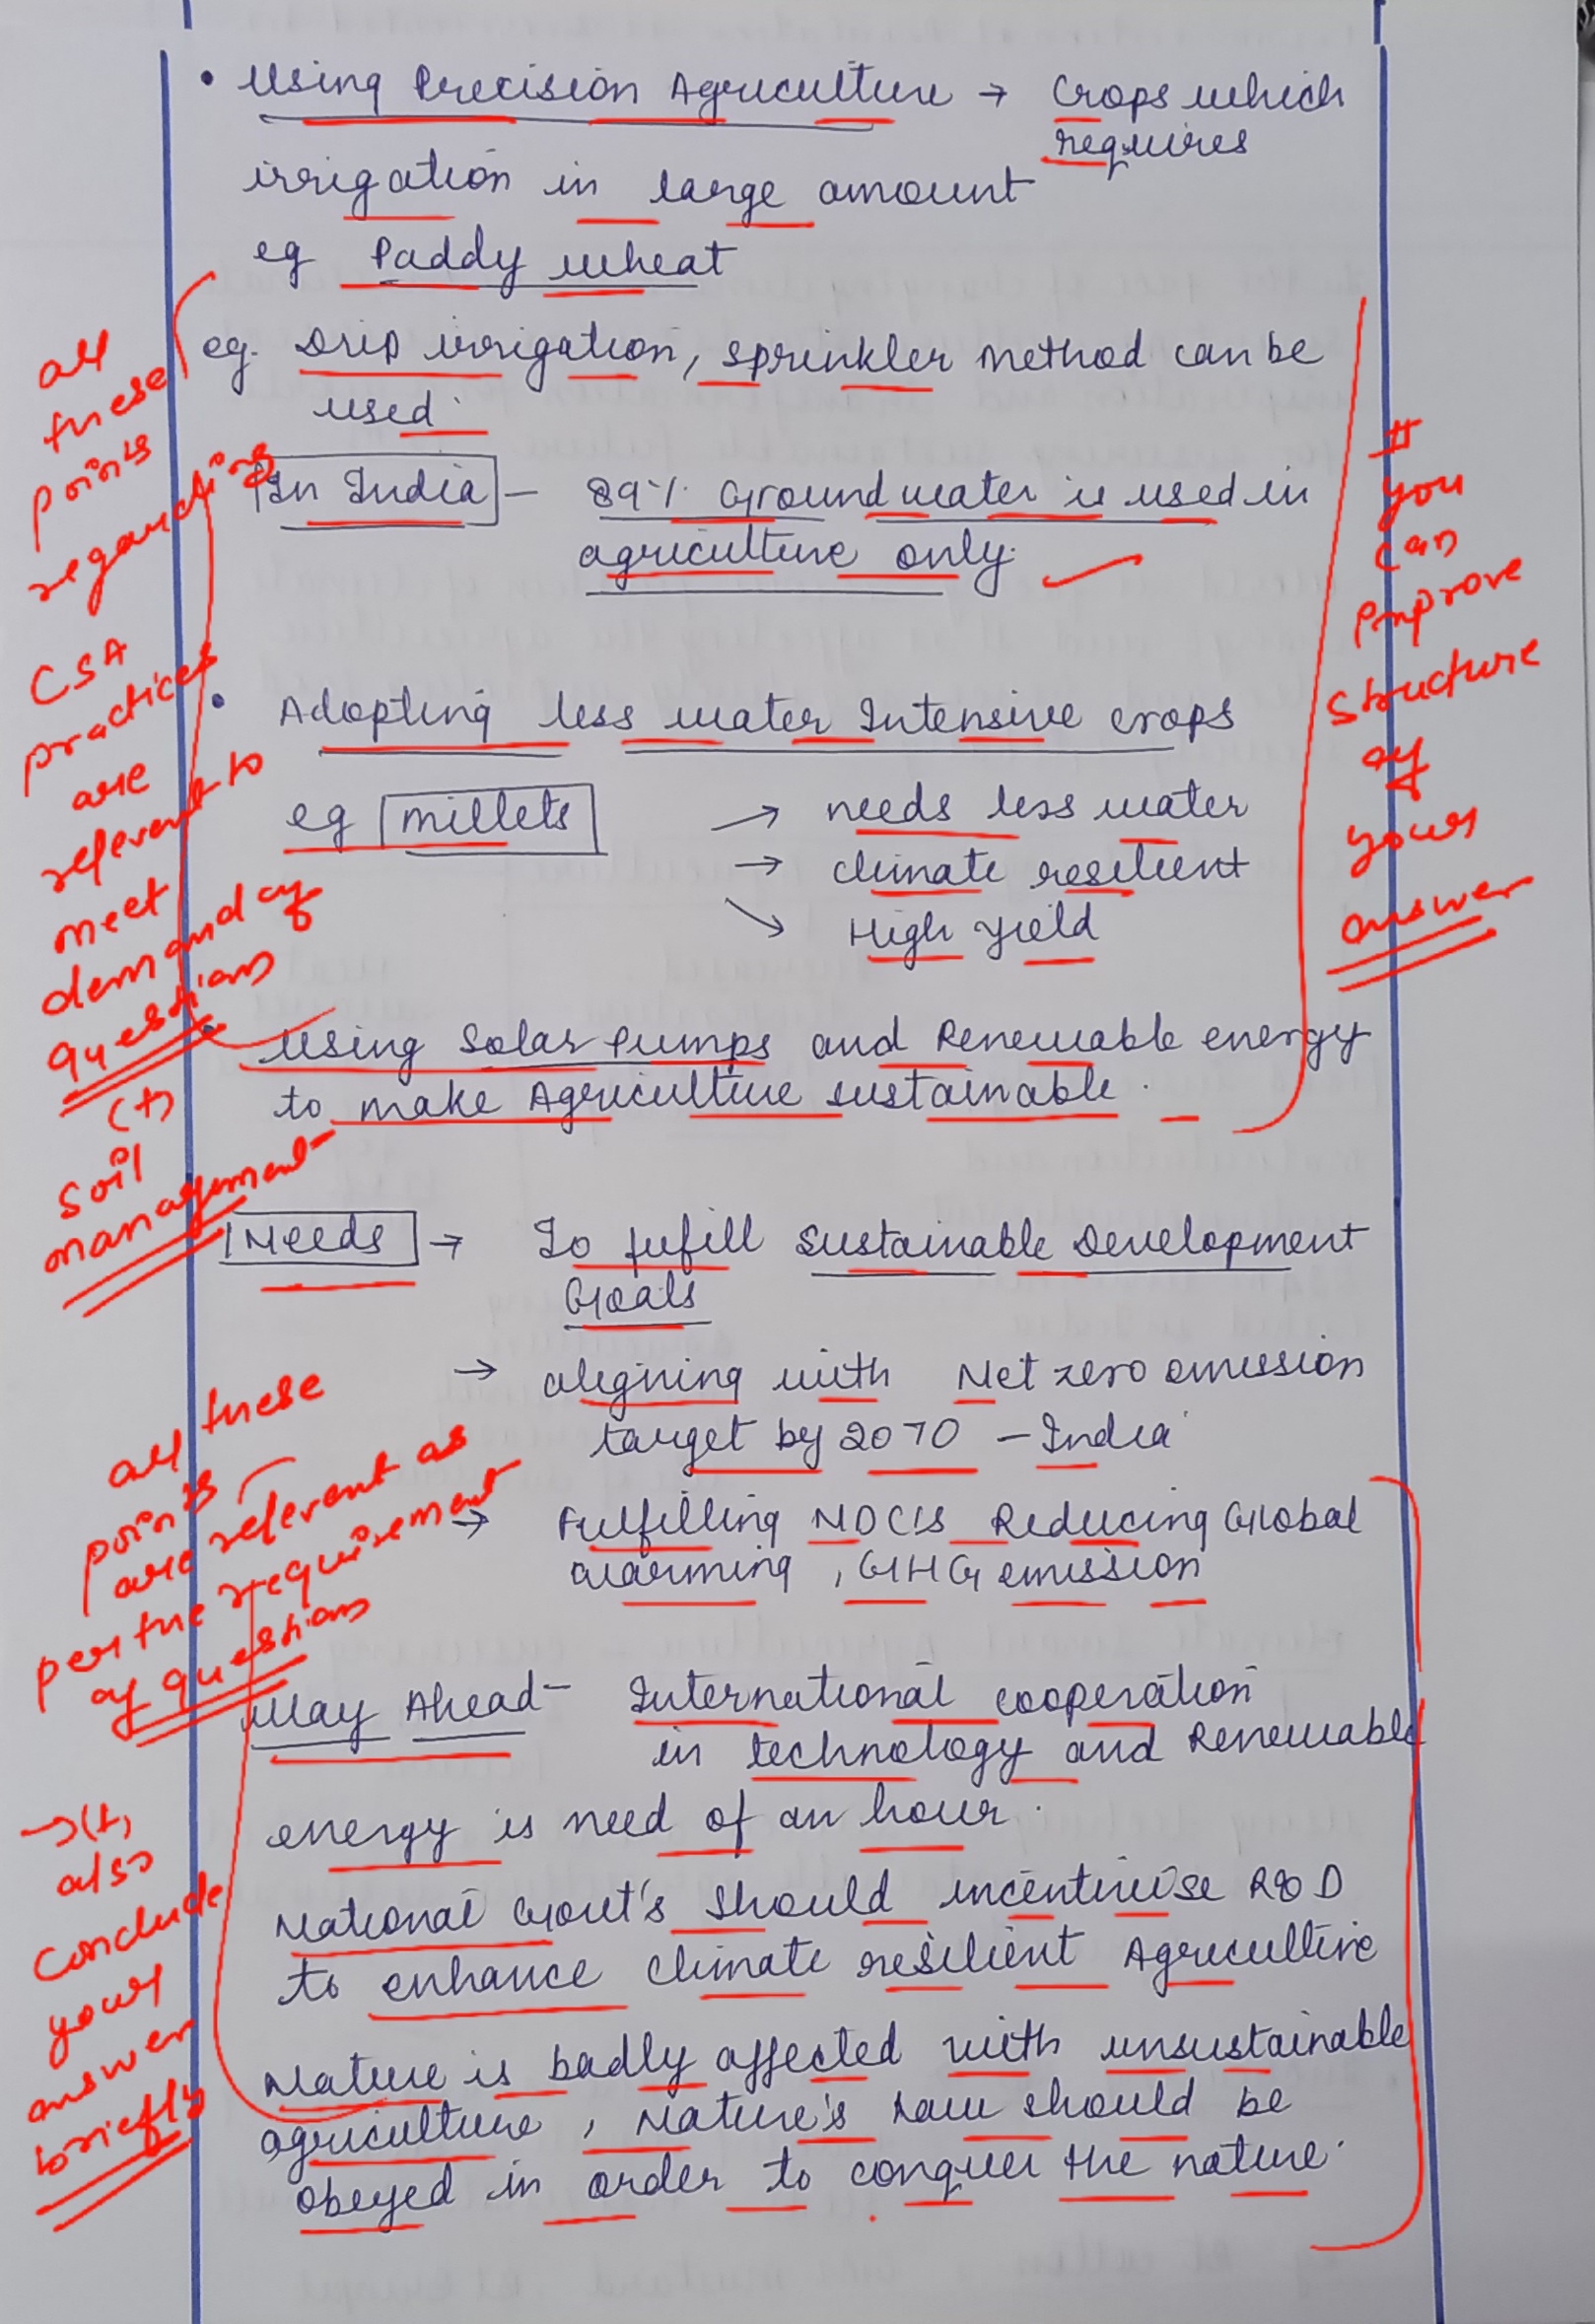 • Using Precision Agriculture → Crops which
requires
irrigation in large amount
eg Paddy wheat
eg. Drip irrigation, sprinkler method can be
used.
In India – 89% Ground water is used in
agriculture only.
• Adopting less water Intensive crops
eg millets → needs less water
→ climate resilient
↘ High yield
• Using Solar Pumps and Renewable energy
to make Agriculture sustainable.
Needs → To fufill Sustainable Development
Goals
→ aligning with Net zero emission
target by 2070 – India
→ Fulfilling NDC's Reducing Global
warming, GHG emission
Way Ahead – International cooperation
in technology and Renewable
energy is need of an hour.
National Gout's should incentivise R&D
to enhance climate resilient Agriculture
Nature is badly affected with unsustainable
agriculture, Nature's Law should be
obeyed in order to conquer the nature.
all
these
points
regarding
CSA
practices
are
referent to
meet
demand of
questions
(+)
Soil
management
all these
points
are referent as
per the requirement
of questions
→ (+)
also
Conclude
your
answer
briefly
#
you
can
improve
Structure
of
your
answer